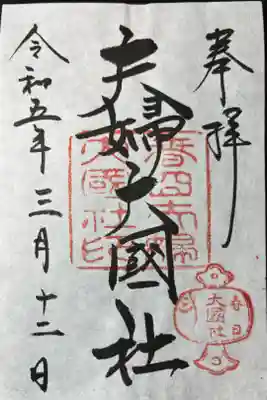 奉拝
夫婦大國社
春日夫婦
大國社印
春日
大國社
令和五年三月十二日